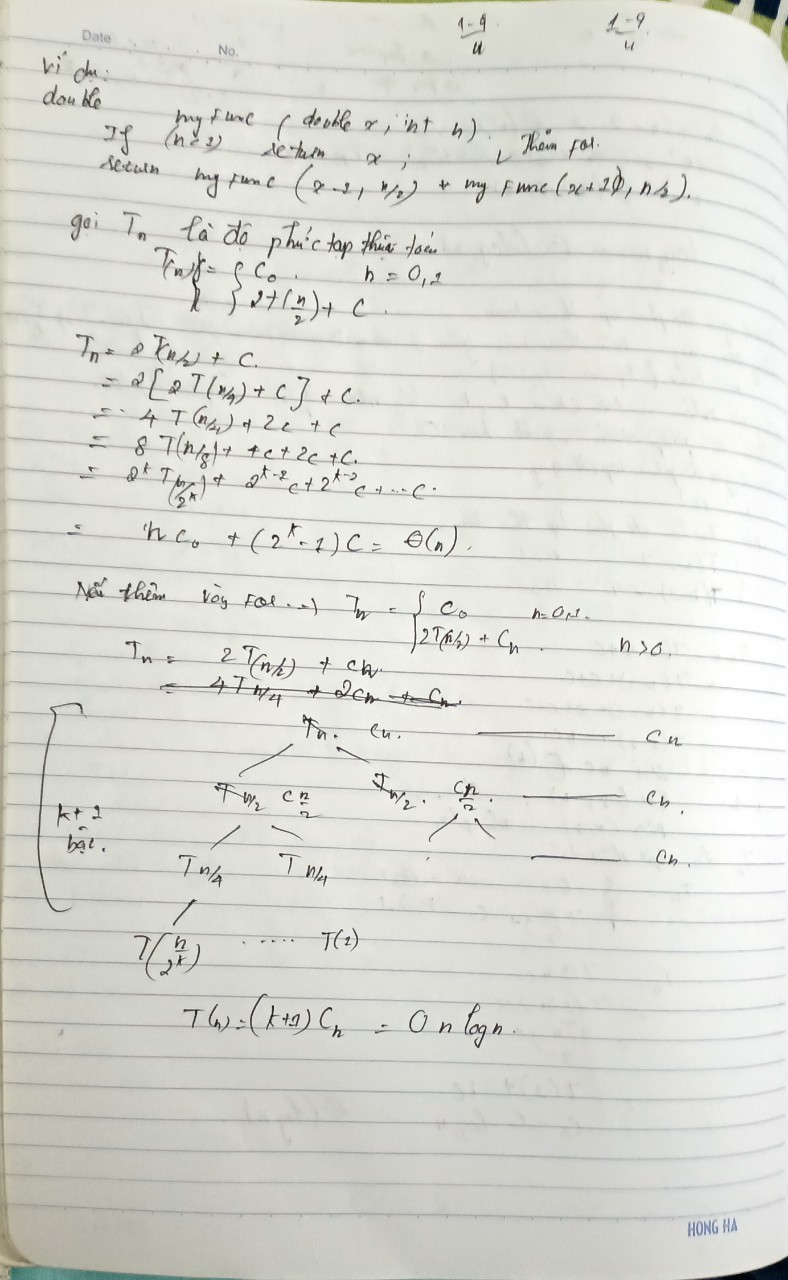 1-9/4 1-9/4
Date No.
Ví dụ:
double
myFunc (double x, int n)
If (n<2) return x; Thêm For.
return myFunc (x-1, n/2) + myFunc(x+10, n/2).
gọi Tn là độ phức tạp thừa toán
T(n) = { C₀. n = 0,1
2T(n/2) + C.
Tn = 2T(n/2) + C.
= 2[2T(n/4) + C] + C.
= 4T(n/4) + 2c + c
= 8T(n/8) + 4c + 2c + c.
= 2^k T(n/2^k) + 2^(k-1)c + 2^(k-2)c + ... c.
= n c₀ + (2^k - 1)C = Θ(n).
Nếu thêm vòng For → Tn = { C₀ n=0,1.
2T(n/2) + Cn. n>0.
Tn = 2T(n/2) + cn.
= 4T n/4 + 2cn + Cn.
Tn. cn. Cn
T n/2 c n/2 T n/2. c n/2. Cn.
k+1
bậc.
T n/4 T n/4 Cn.
T(n/2^k) ..... T(1)
T(n) = (k+1) Cn = O n log n.
HONG HA